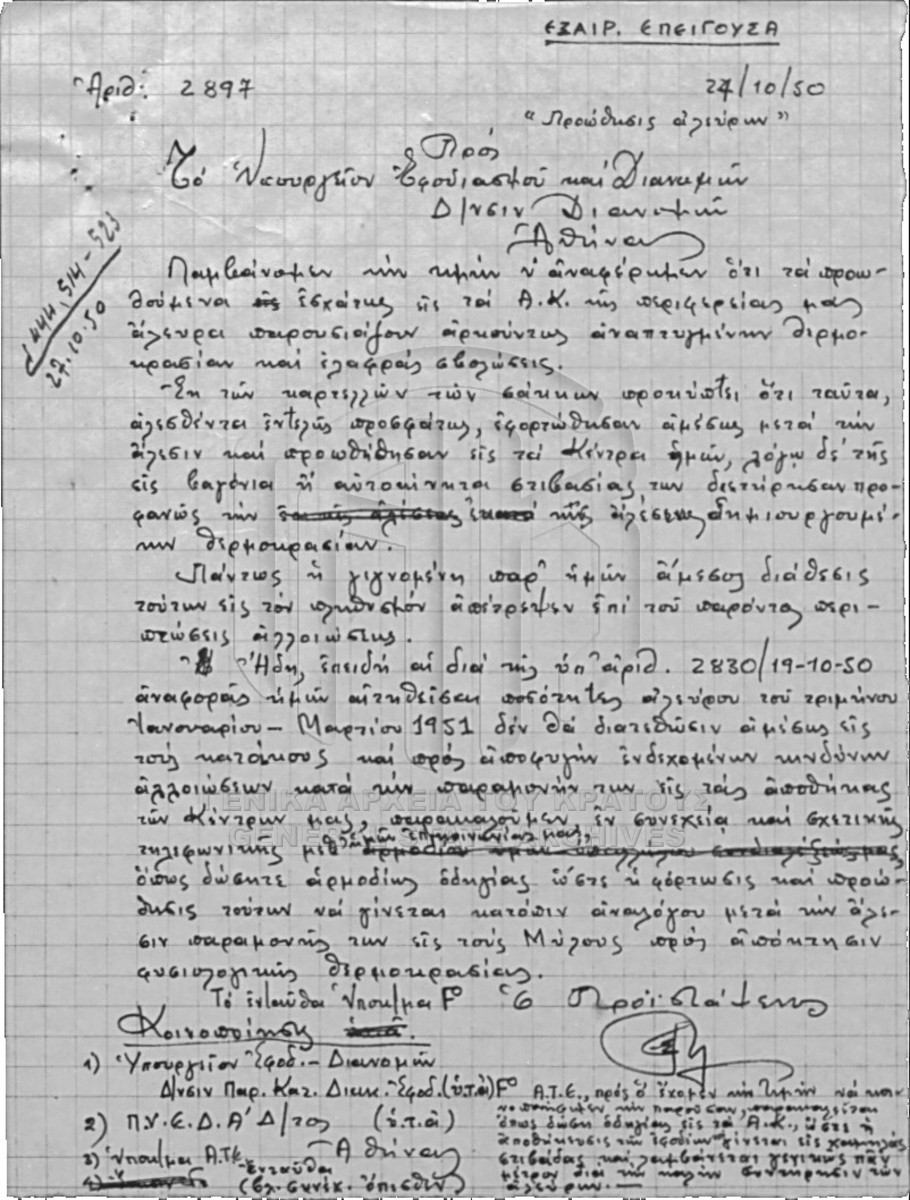 ΕΞΑΙΡ. ΕΠΕΙΓΟΥΣΑ
Ἀριθ: 2897
27/10/50
"Προώθησις ἀλεύρων"
Πρός
Τό Ὑπουργεῖον Ἐφοδιασμοῦ καί Διανομῶν
Δ/νσιν Διανομῶν
Ἀθήνας
27.10.50
Λαμβάνομεν τήν τιμήν ν' ἀναφέρωμεν ὅτι τά προω-
θούμενα ἐσχάτως εἰς τά Α.Κ. τῆς περιφερείας μας
ἄλευρα παρουσιάζουν ἀρκούντως ἀναπτυγμένην θερμο-
κρασίαν καί ἐλαφράς σβολώσεις.
Ἐκ τῶν καρτελλῶν τῶν σάκκων προκύπτει ὅτι ταῦτα,
ἀλεσθέντα ἐντελῶς προσφάτως, ἐφορτώθησαν ἀμέσως μετά τήν
ἄλεσιν καί προωθήθησαν εἰς τά Κέντρα ἡμῶν, λόγῳ δέ τῆς
εἰς βαγόνια ἤ αὐτοκίνητα στιβασίας των διετήρησαν προ-
φανῶς τήν ἐκ τῆς ἀλέσεως δημιουργουμέ-
νην θερμοκρασίαν.
Πάντως ἡ γιγνομένη παρ' ἡμῶν ἄμεσος διάθεσις
τούτων εἰς τόν πληθυσμόν ἀπέτρεψεν ἐπί τοῦ παρόντος περι-
πτώσεις ἀλλοιώσεως.
Ἤδη, ἐπειδή αἱ διά τῆς ὑπ' ἀριθ. 2830/19-10-50
ἀναφορᾶς ἡμῶν αἰτηθεῖσαι ποσότητες ἀλεύρου τοῦ τριμήνου
Ἰανουαρίου - Μαρτίου 1951 δέν θά διατεθῶσιν ἀμέσως εἰς
τούς κατοίκους καί πρός ἀποφυγήν ἐνδεχομένων κινδύνων
ἀλλοιώσεων κατά τήν παραμονήν των εἰς τάς ἀποθήκας
τῶν Κέντρων μας, παρακαλοῦμεν, ἐν συνεχείᾳ καί σχετικῆς
τηλεφωνικῆς μεθ' ὑμῶν ἐπικοινωνίας μας,
ὅπως δώσητε ἁρμοδίως ὁδηγίας ὥστε ἡ φόρτωσις καί προώ-
θησις τούτων νά γίνεται κατόπιν ἀναλόγου μετά τήν ἄλε-
σιν παραμονῆς των εἰς τούς Μύλους πρός ἀπόκτησιν
φυσιολογικῆς θερμοκρασίας.
Τό ἐνταῦθα Ὑποκ/μα Ὁ Προϊστάμενος
Κοινοποίησις
1) Ὑπουργεῖον Ἐφοδ. - Διανομῶν
Δ/νσιν Παρ. Κατ. Διεκ. Ἐφοδ. (ὑ.τ.ἀ)
2) Π.Υ.Ε.Δ.Α' Δ/τος (ὑ.τ.ἀ)
Ἀθήνας
3) Ὑποκ/μα Α.Τ.Ε. Ἐνταῦθα
(βλ. συνέχ. ὄπισθεν)
Α.Τ.Ε., πρός ὅ ἔχομεν τήν τιμήν νά κοι-
νοποιήσωμεν τήν παροῦσαν, παρακαλεῖται
ὅπως δώσῃ ὁδηγίας εἰς τά Α.Κ., ὥστε ἡ
ἀποθήκευσις τῶν ἐφοδίων γίνεται εἰς χαμηλάς
στιβάδας καί λαμβάνεται γενικῶς πᾶν
μέτρον διά τήν καλήν συντήρησιν τῶν
ἀλεύρων.
ΓΕΝΙΚΑ ΑΡΧΕΙΑ ΤΟΥ ΚΡΑΤΟΥΣ
GENERAL STATE ARCHIVES